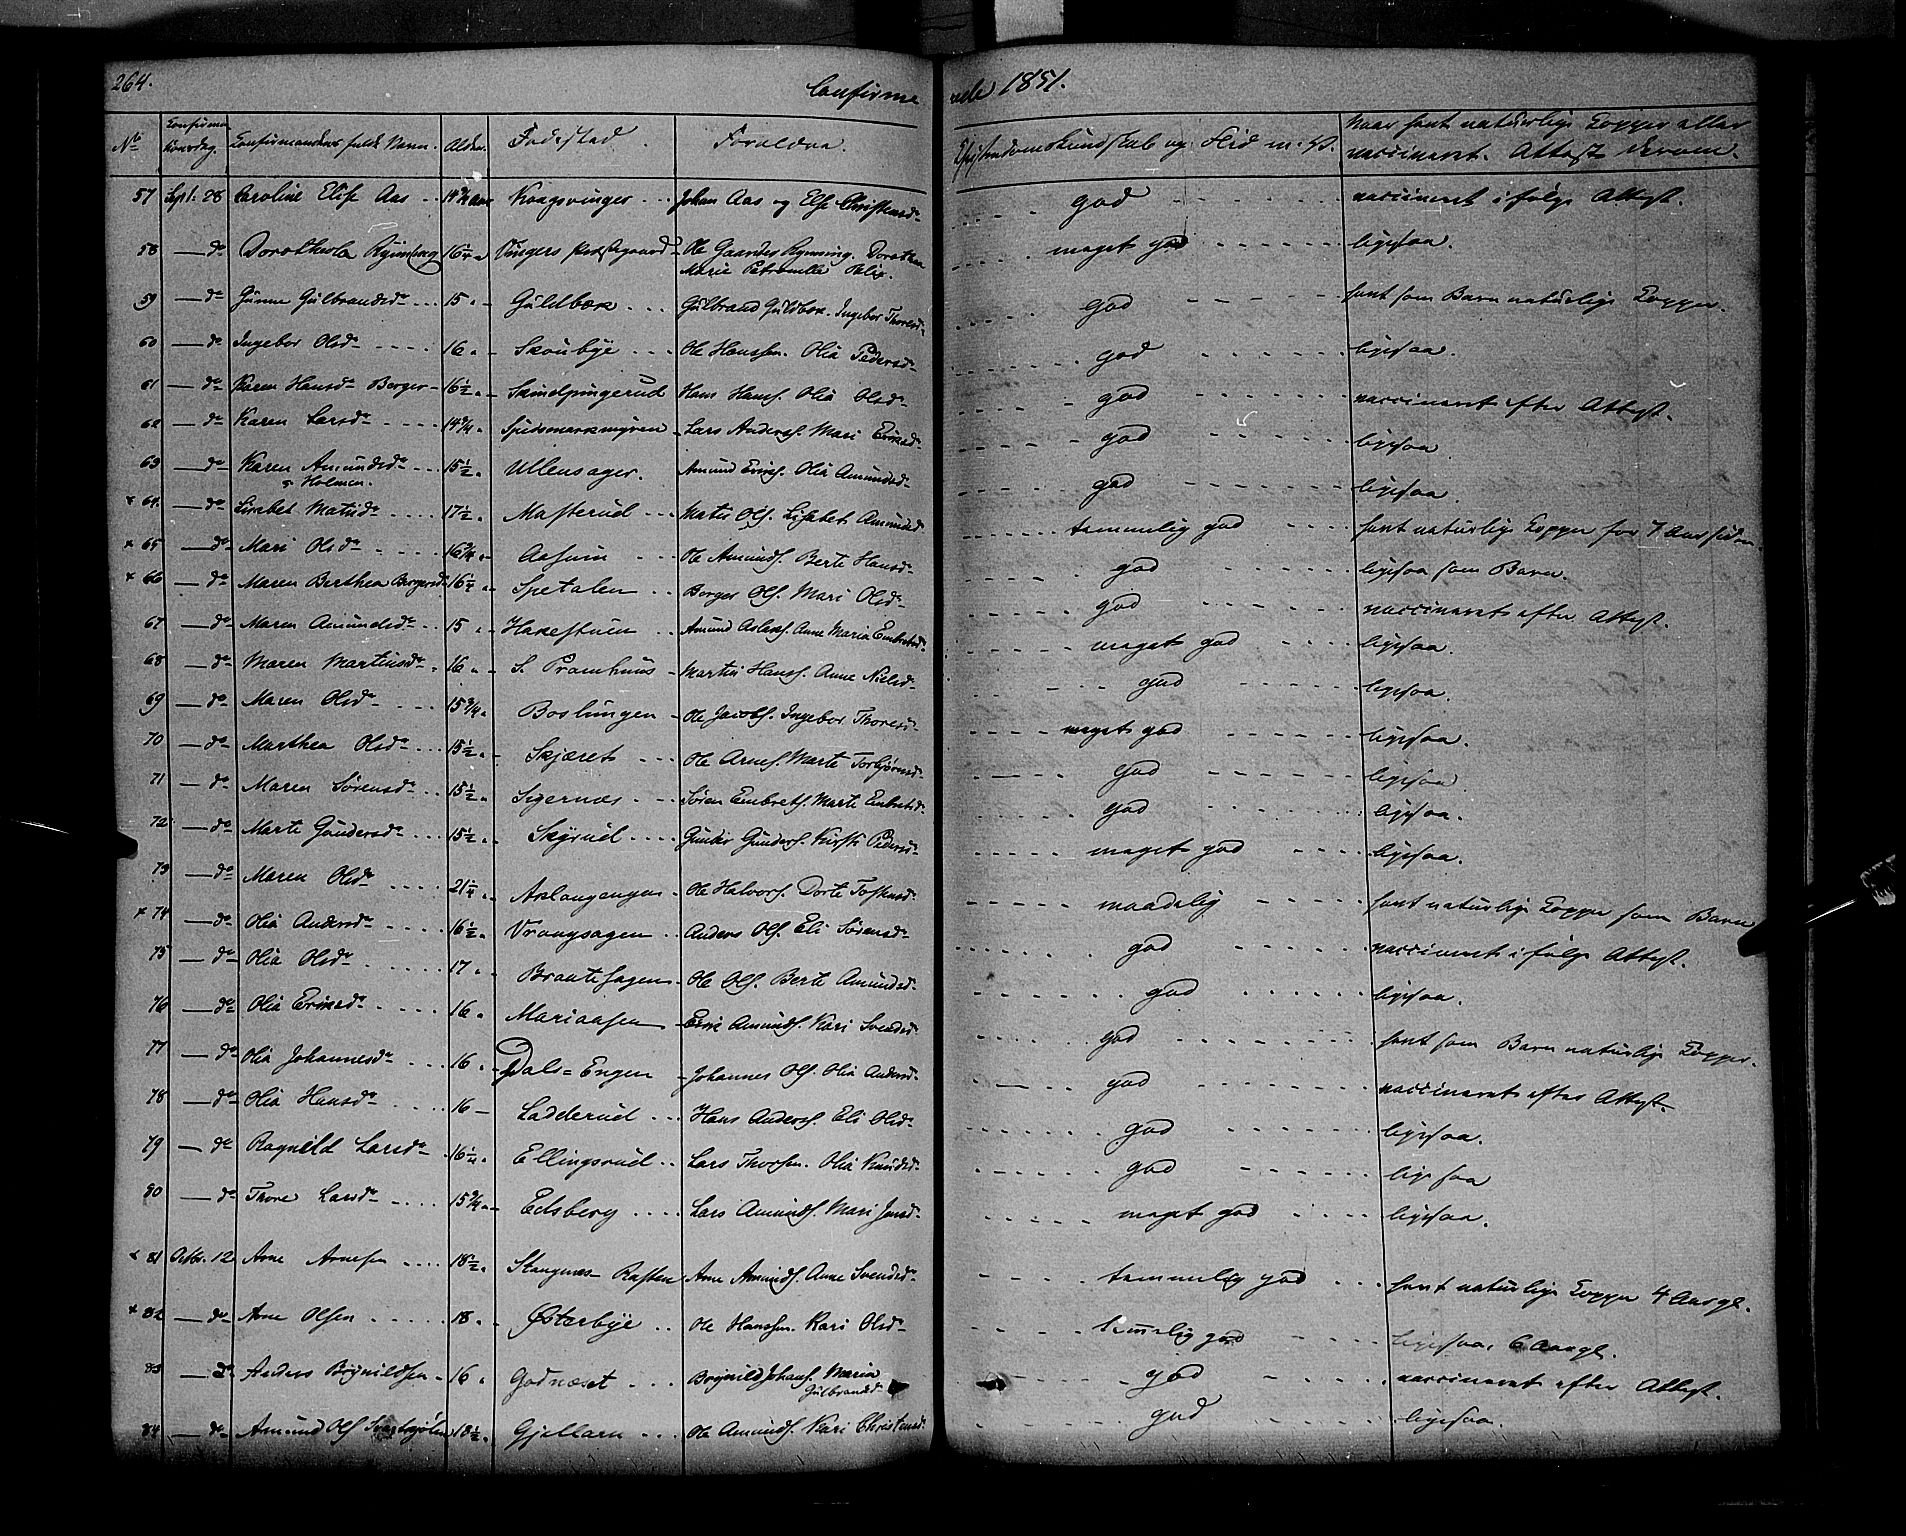 264. Confirmerede 1851.
No Confirmationsdag. Confirmandens fulde Navn. Alder. Fødested. Forældre. Christendomskundskab og Flid m: V. Naar havt naturlige Kopper eller vaccineret. Attest derom.
57 Sept. 28 Caroline Elise Aas 14 3/4 Aar Kongsvinger Johan Aas og Else Christensd. god vaccineret ifølge Attest.
58 do Dorothea 16 1/4 Vingers Præstegaard Ole Gaarder Rynning. Dorothea meget god ligesaa.
Marie Petronelle
59 do Gunne Gulbrandsdr 15 Guldbæk Gulbrand Guldbæk. Ingebor Thoresd. god havt som Barn naturlige Kopper.
60 do Ingebor Olsdr 16 Skoubye Ole Hanssen. Olia Pedersdr god ligesaa.
61 do Karen Hansdr Berger 16 1/2 Hans Hanss. Olia Olsdr god vaccineret efter Attest.
62 do Karen Larsdr 14 3/4 Spidsmarkmyren Lars Anderss. Mari Eriksdr god ligesaa.
63 do Karen Amundsdr 15 1/2 Ullensager. Amund Erikss. Olia Amundsdr god ligesaa.
Holmen.
x 64. do Lisabet Matisdr 17 1/2 Masterud Matis Ols. Lisabet Amundsd temmelig god havt naturlige Kopper for 7 Aar siden
x 65 do Mari Olsdr 16 3/4 Aasum Ole Amunds. Berte Hansdr god ligesaa som Barn.
x 66 do Maren Berthea Bergersdr 16 1/2 Spetalen Berger Ols. Mari Olsdr god vaccineret efter Attest.
67 do Maren Amundsdr 15 Hakestuen Amund Aslaks. Anne Maria Embretsdr meget god ligesaa.
68 do Maren Martinsdr 16 S. Pramhuus Martin Hanss. Anne Nielsdr god ligesaa.
69 do Maren Olsdr 15 3/4 Boslungen Ole Jacobs. Ingebor Thoresdr meget god ligesaa.
70 do Marthea Olsdr 15 1/2 Skjæret Ole Arnes. Marte Torbjørnsdr god ligesaa
71 do Maren Sørensdr 15 1/2 Sigernæs Søren Embrets. Marte Embretsdr god ligesaa.
72 do Marte Gundersdr 15 1/2 Skyrud Gunder Gunders. Kirsti Pedersdr meget god ligesaa.
73 do Maren Olsdr 21 1/4 Aslangengen Ole Halvors. Dorte Tostensdr maadelig havt naturlige Kopper som Barn
x 74 do Olia Andersdr 16 1/2 Vrangsagen Anders Ols. Eli Sørensdr god vaccineret ifølge Attest.
75 do Olia Olsdr 17 Braatehagen Ole Ols. Berte Amundsdr god ligesaa.
76 do Olia Eriksdr 16 Mariaasen Erik Amunds. Kari Svendsdr god havt som Barn naturlige Kopper.
77 do Olia Johannesdr 16 Dals=Engen Johannes Ols. Olia Andersdr god vaccineret efter Attest
78 do Olia Hansdr 16 Ladderud Hans Anderss. Eli Olsdr god ligesaa.
79 do Ragnild Larsdr 16 1/4 Ellingsrud Lars Thorsen. Olia Knudsdr god ligesaa
80 do Thore Larsdr 15 3/4 Edsberg Lars Amunds. Mari Jensdr meget god ligesaa.
x 81 Octbr. 12 Arne Arnesen 18 1/2 Stangnæs- Arne Amunds. Anne Svendsdr temmelig god havt naturlige Kopper 4 Aar gl.
x 82 do Arne Olsen 18 Østerbye Ole Hanssen. Kari Olsdr temelig god ligesaa, 6 Aar gl.
83 do Anders Brynildsen 16 Godnæset Brynild Johans. Maria god vaccineret efter Attest.
Gulbrandsdr
84 do Amund Ols 18 1/2 Gjøllarn Ole Amunds. Kari Christensdr god ligesaa.